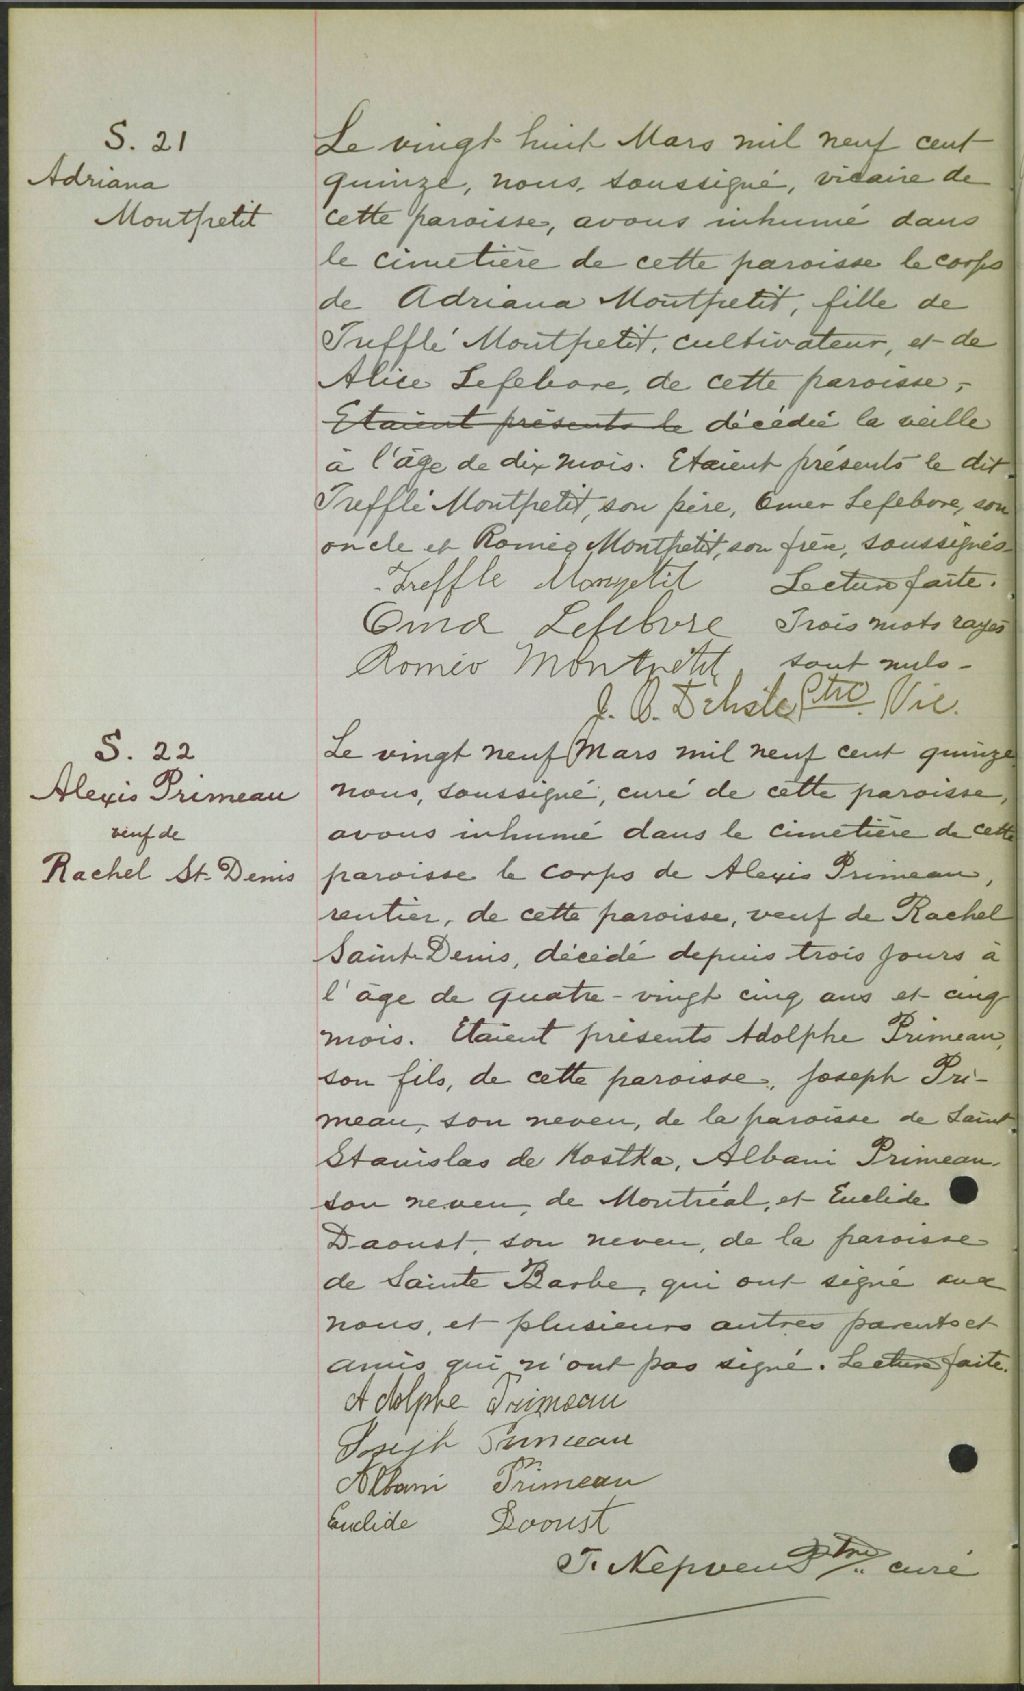 S. 21
Adriana
Montpetit
Le vingt huit Mars mil neuf cent
quinze, nous, soussigné, vicaire de
cette paroisse, avons inhumé dans
le cimetière de cette paroisse le corps
de Adriana Montpetit, fille de
Trefflé Montpetit, cultivateur, et de
Alice Lefebvre, de cette paroisse,
Etaient présents le décédée la veille
à l'âge de dix mois. Etaient présents le dit
Trefflé Montpetit, son père, Omer Lefebvre, son
oncle et Roméo Montpetit, son frère, soussignés
Treffle Monpetit Lecture faite.
Omer Lefebvre Trois mots rayés
Roméo Montpetit sont nuls -
J. O. Delisle Ptre. Vic.
S. 22
Alexis Primeau
veuf de
Rachel St-Denis
Le vingt neuf Mars mil neuf cent quinze
nous, soussigné, curé de cette paroisse,
avons inhumé dans le cimetière de cette
paroisse le corps de Alexis Primeau,
rentier, de cette paroisse, veuf de Rachel
Saint-Denis, décédé depuis trois jours à
l'âge de quatre-vingt cinq ans et cinq
mois. Etaient présents Adolphe Primeau,
son fils, de cette paroisse, Joseph Pri-
meau, son neveu, de la paroisse de Saint
Stanislas de Kostka, Albani Primeau
son neveu, de Montréal, et Euclide
Daoust, son neveu, de la paroisse
de Sainte Barbe, qui ont signé avec
nous, et plusieurs autres parents et
amis qui n'ont pas signé. Lecture faite.
Adolphe Primeau
Joseph Primeau
Albani Primeau
Euclide Daoust
T. Nepveu Ptre curé